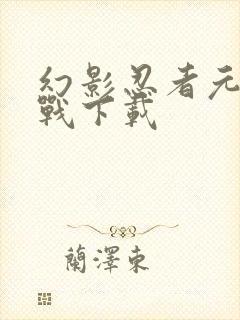 幻影忍者元
戰下載
蘭澤東